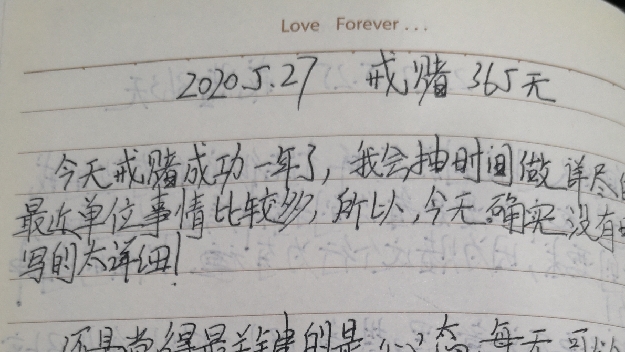 Love Forever...
2020.5.27 戒赌 365天
今天戒赌成功一年了,我会抽时间做详尽的
最近单位事情比较多,所以,今天确实没有
写的太详细!
还是觉得最关键的是心态 每天可以